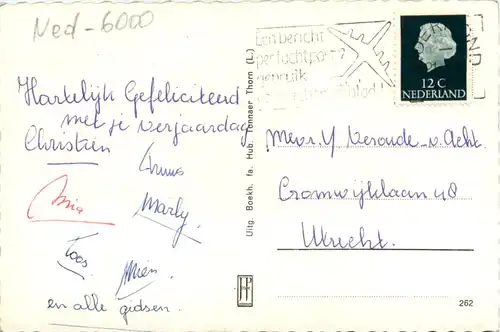 Ned - 6000
Een bericht
per luchtpost?
gebruik
12 C
NEDERLAND
Hartelijk Gefeliciteerd
met je verjaardag
Christien
Truus
Ria
Marly.
Toos.
Mien.
en alle gidsen.
Uitg. Boekh. fa. Hub. Tonnaer Thorn (L.)
Mevr. Y Veroude-v. Acht.
Cromwijklaan 48
Utrecht.
262